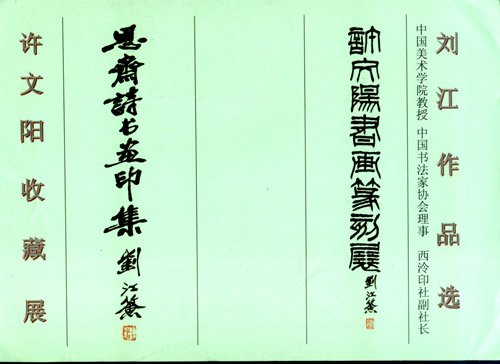 刘江作品选
中国美术学院教授 中国书法家协会理事 西泠印社副社长
許文陽書画篆刻展
劉江籤
思齋詩书画印集
劉江籤
许文阳收藏展